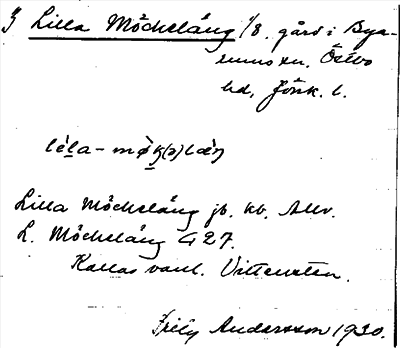 Lilla Möckeläng 1/8. gård i Bya-
rums sn. Östbo
hd, Jönk. l.
Lilla Möckeläng jb. kb. Allv.
L. Möckeläng G 27.
Kallas vanl. Vittensten.
Frity Andersson 1930.